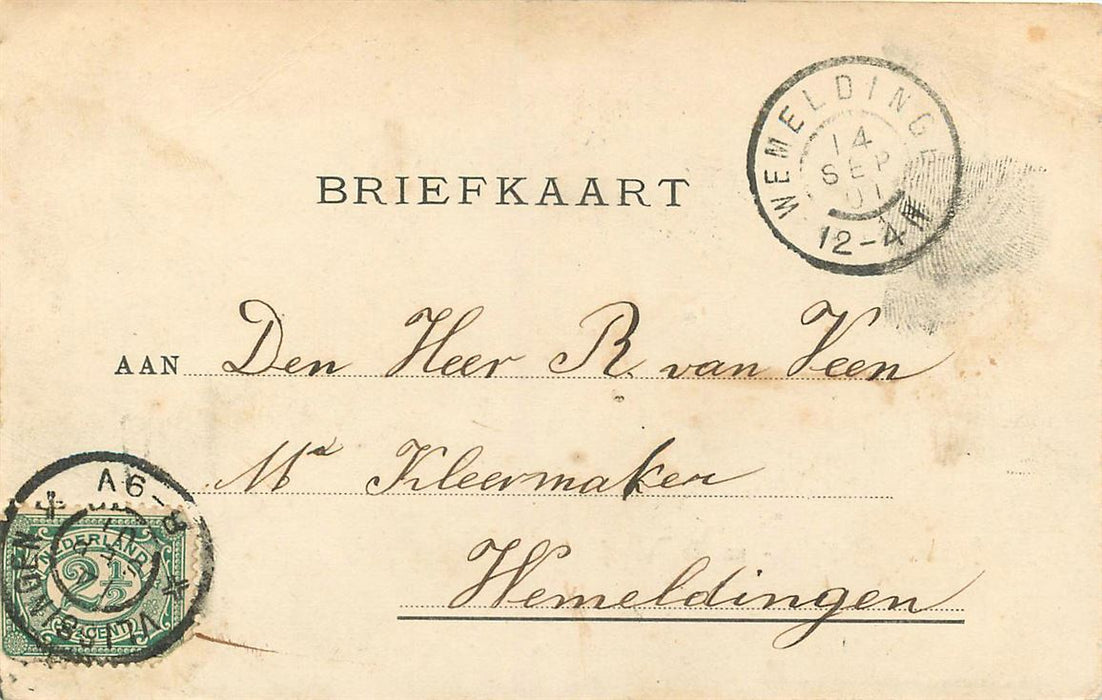 WEMELDINGE
14
SEP
01
12-4N
BRIEFKAART
AAN Den Heer R. van Veen
Mr Kleermaker
Wemeldingen
VLISSINGEN
NEDERLAND
2½
CENT